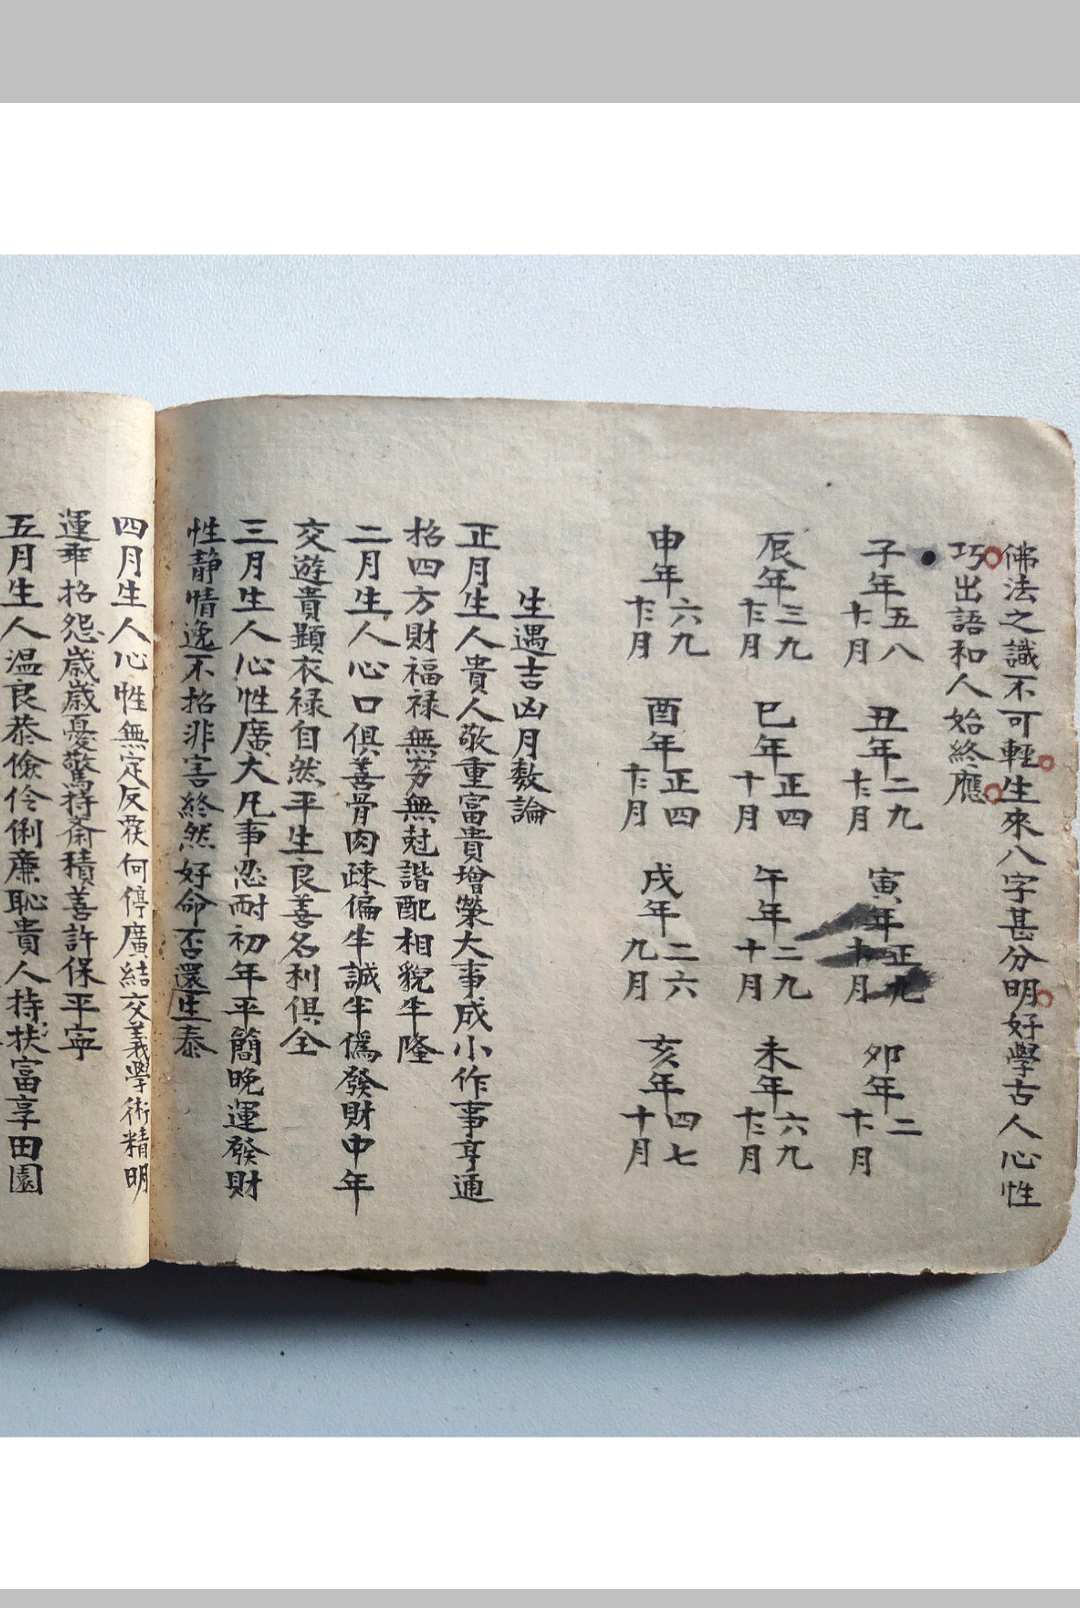 佛法之識不可輕生來八字甚分明好學古人心性
巧出語和人始終應
子年五八𠦃月　丑年二九𠦃月　寅年正九十月　卯年二𠦃月
辰年三九𠦃月　巳年正四十月　午年二九十月　未年六九𠦃月
申年六九𠦃月　酉年正四𠦃月　戌年二六九月　亥年四七十月
生遇吉凶月数論
正月生人貴人敬重富貴增榮大事成小作事亨通
招四方財福禄無穷無尅諧配相貌半隆
二月生人心口俱善骨肉疎偏半誠半偽發財中年
交遊貴顯衣禄自然平生良善名利俱全
三月生人心性廣大凡事忍耐初年平簡晚運發財
性静情逸不招非害終然好命否還生泰
四月生人心性無定反覆何停廣結交義學術精明
運乖招怨歲歲憂驚持斋積善許保平寍
五月生人温良恭儉伶俐廉恥貴人持扶富享田園